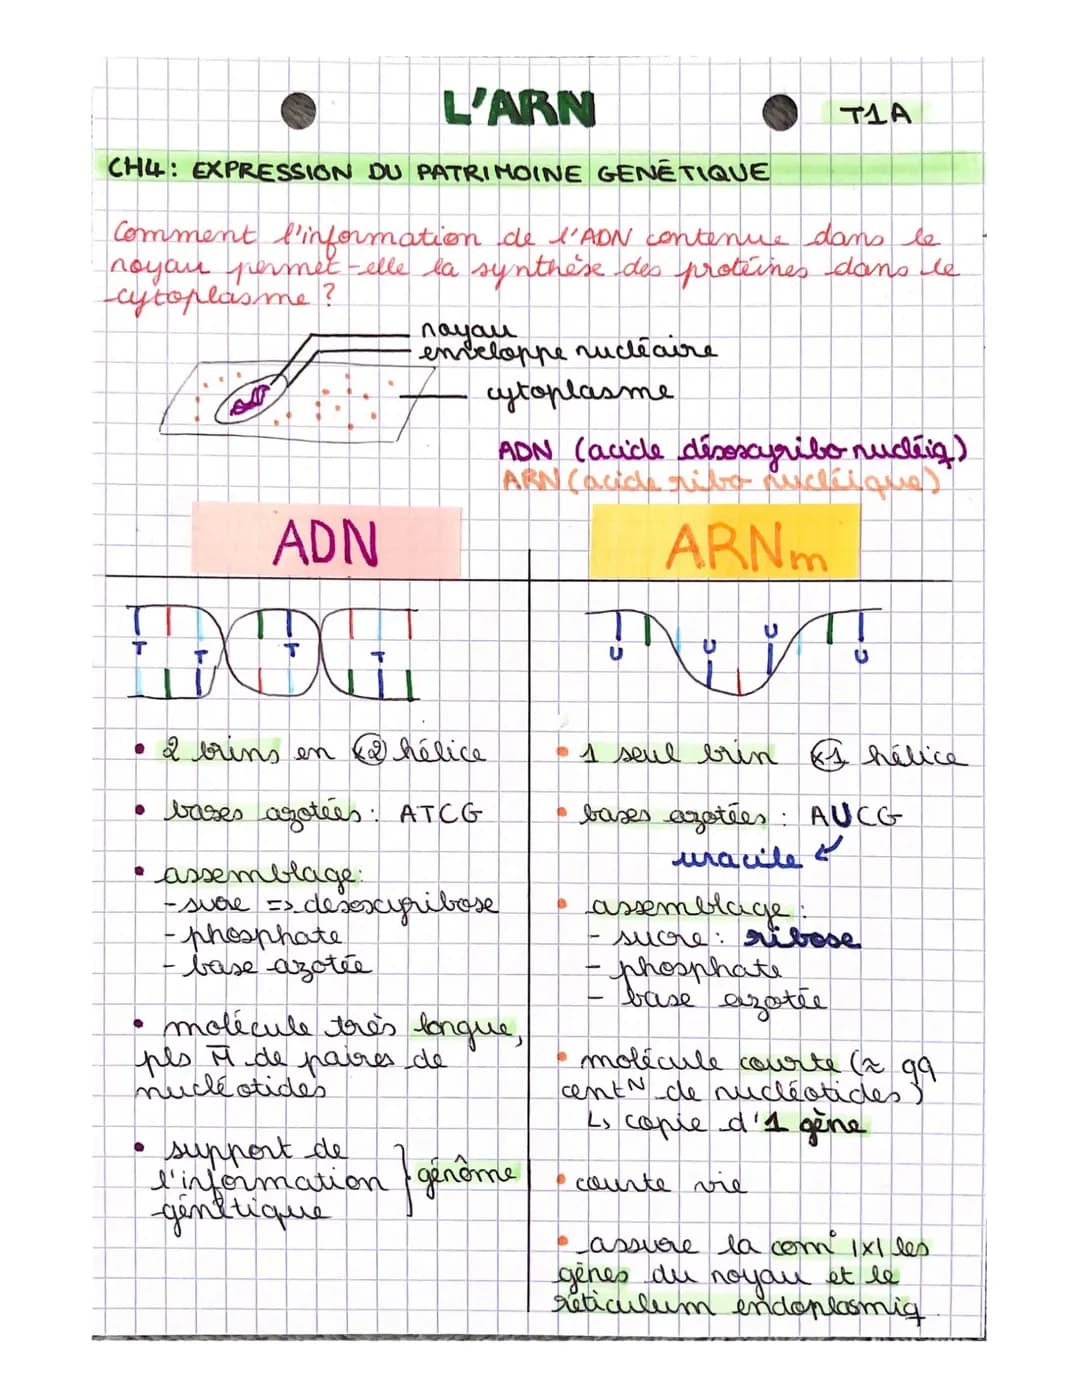 L'ARN
T1A
CH4: EXPRESSION DU PATRIMOINE GENÉTIQUE
Comment l'information de l'ADN contenue dans le
noyau permet-elle la synthèse des protéines dans le
cytoplasme ?
noyau
enveloppe nucléaire
cytoplasme
ADN (acide désoxyribo nucléiq)
ARN (acide ribo nucléique)
ADN
ARNm
T T T T
U U U U
• 2 brins en x2 hélice
• bases azotées : ATCG
• assemblage:
- sucre => desoxyribose
- phosphate
- base azotée
• molécule très longue,
pls M de paires de
nucléotides
• support de
l'information
génétique
} génôme
• 1 seul brin x1 hélice
• bases azotées : AUCG
uracile
• assemblage :
- sucre : ribose
- phosphate
- base azotée
• molécule courte (≈ qq
centN de nucléotides)
↳ copie d'1 gène
• courte vie
• assure la com° 1x1 les
gènes du noyau et le
réticulum endoplasmiq.